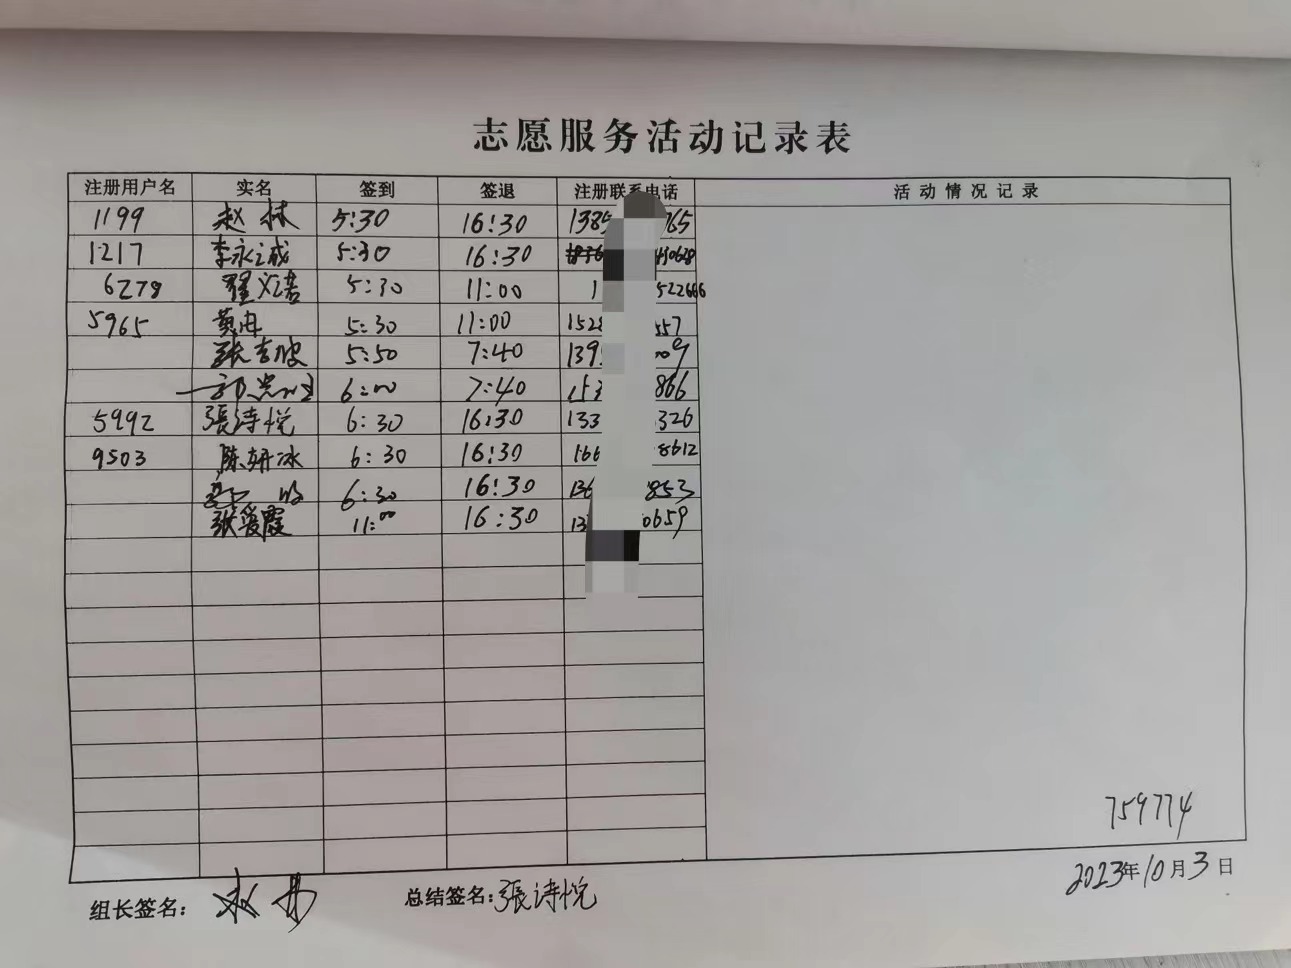 志愿服务活动记录表
注册用户名 实名 签到 签退 注册联系电话 活动情况记录
1199 赵林 5:30 16:30 1385 765
1217 李永诚 5:30 16:30
6278 翟义诺 5:30 11:00 1 522666
5965 黄冉 5:30 11:00 1528 557
5:50 7:40 139 09
6:00 7:40 153 866
5992 張诗悦 6:30 16:30 133 326
9503 陈妍冰 6:30 16:30 166 8612
6:30 16:30 136 853
张爱霞 11:00 16:30 13 0659
759774
2023年10月3日
组长签名:
总结签名:張诗悦